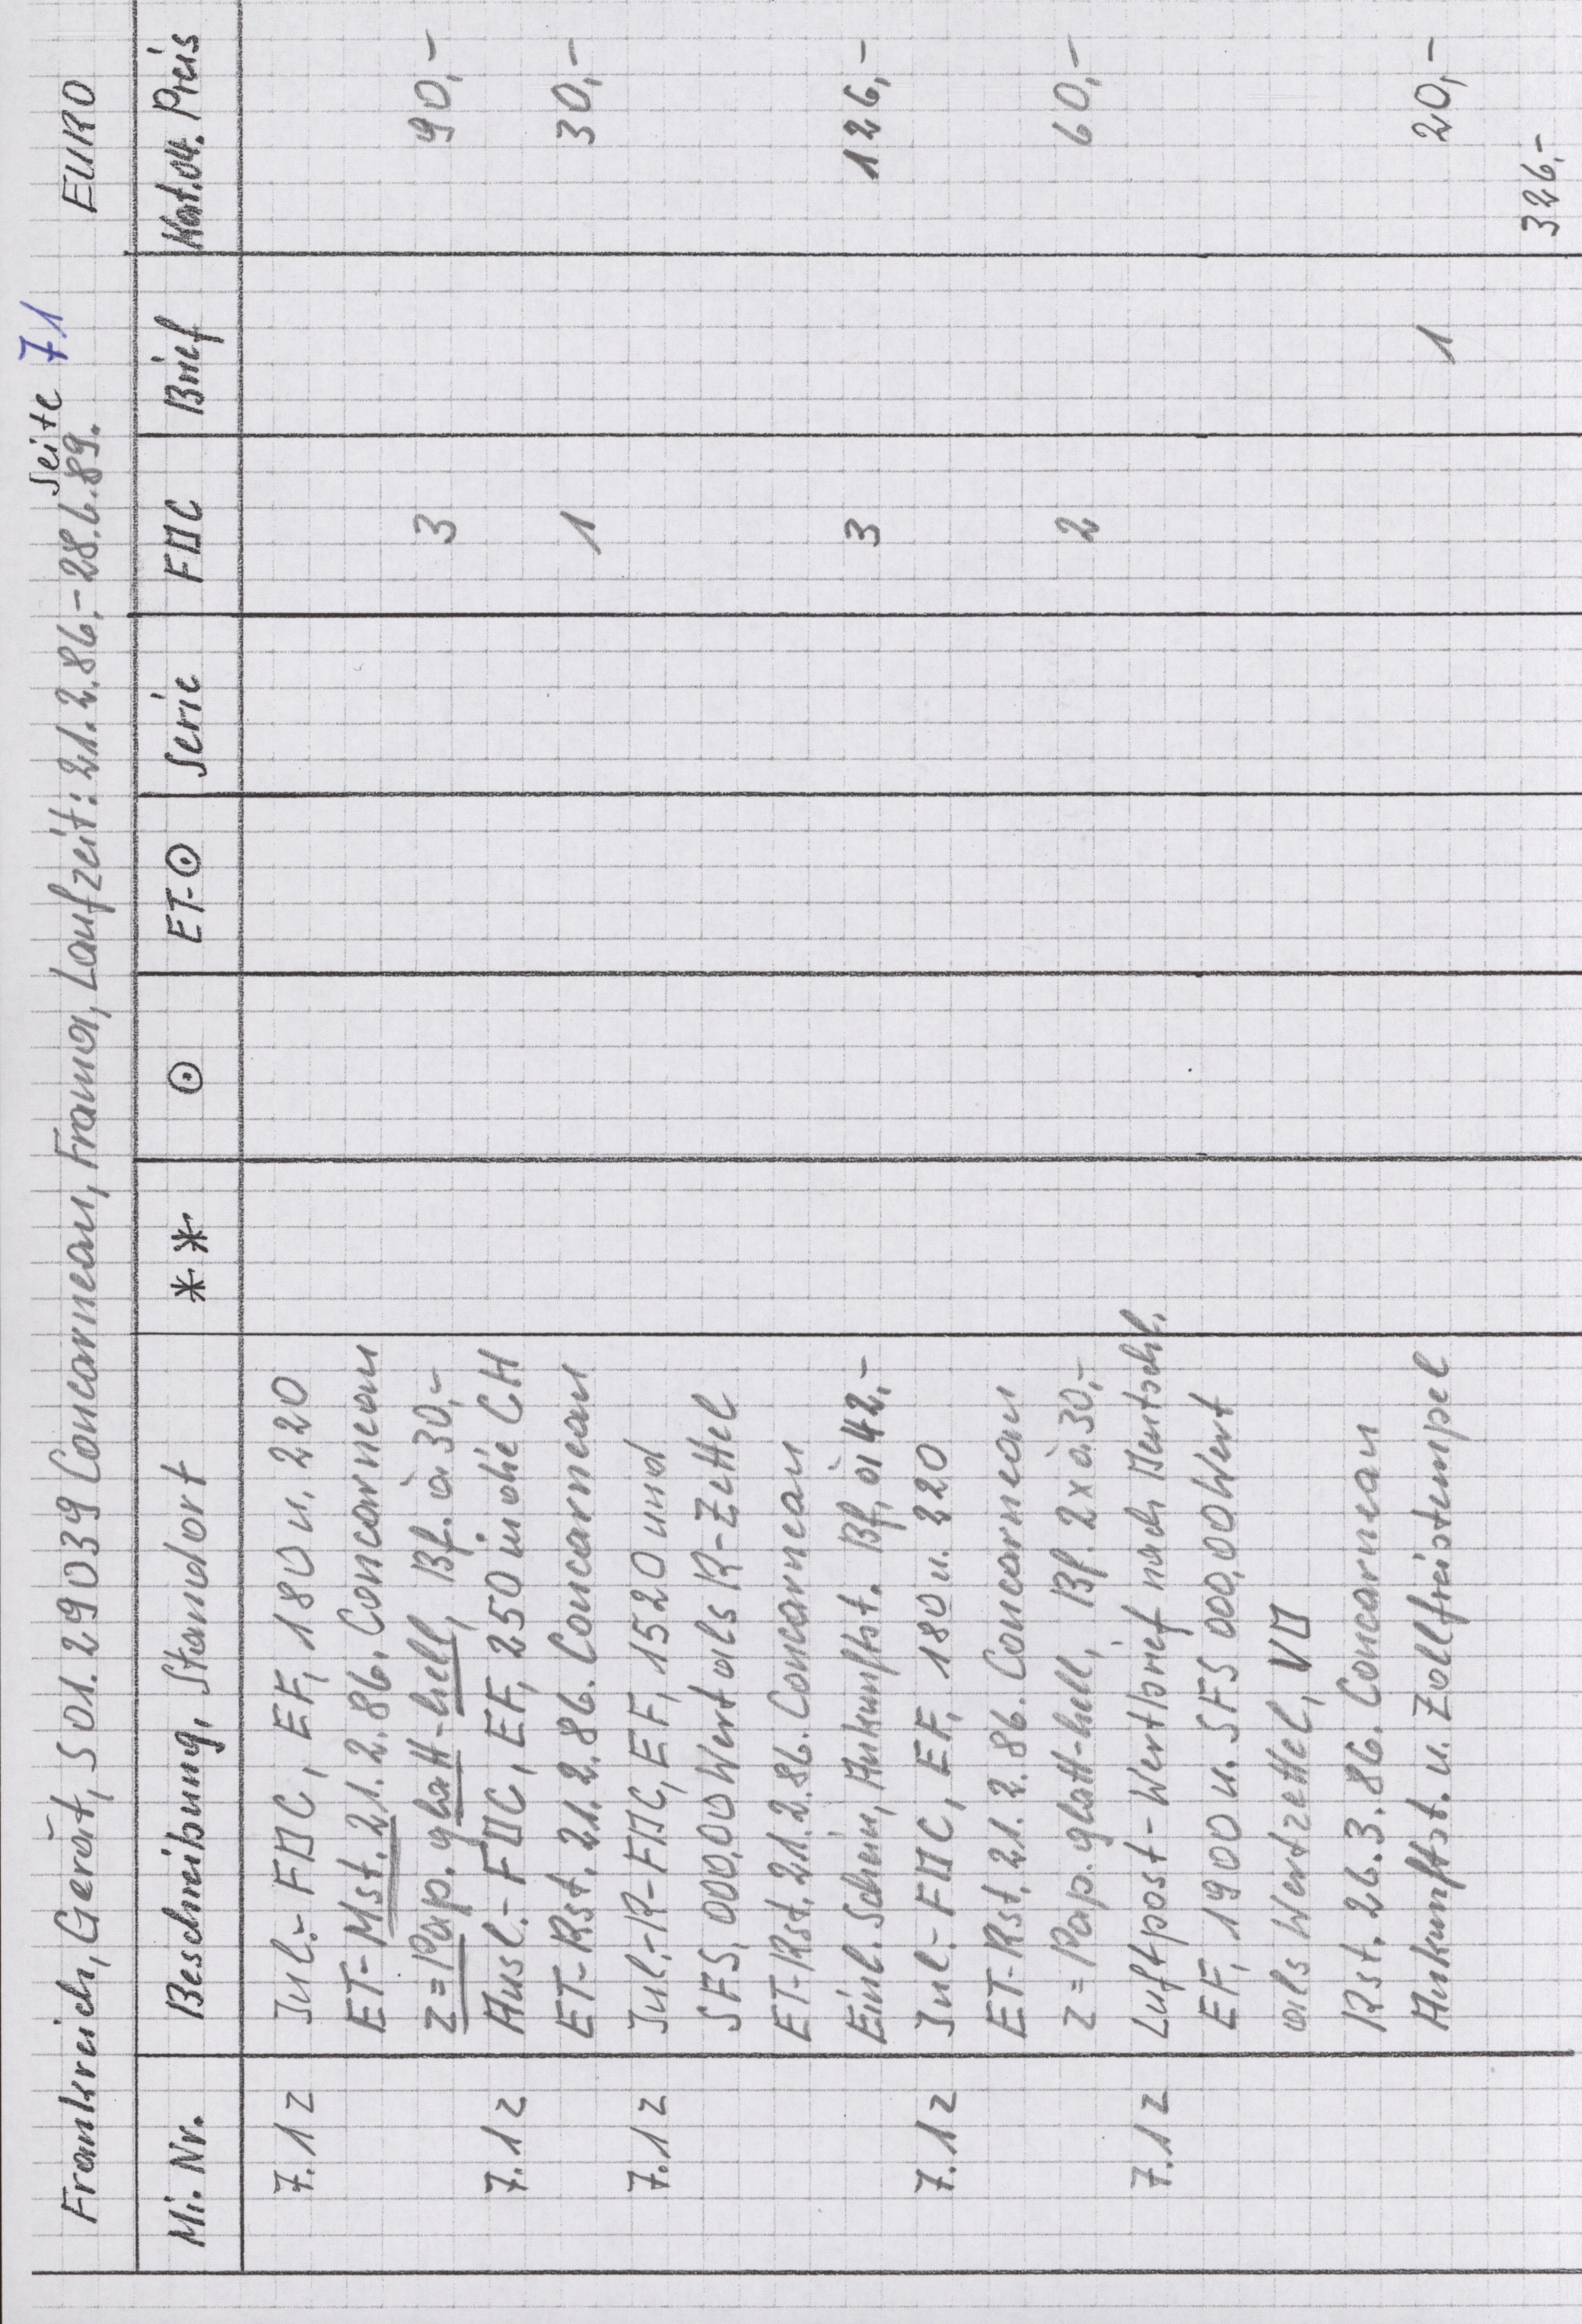 Seite 71
Frankreich, Gerät, S01.29039 Concarneau, Frama, Laufzeit: 21.2.86.-28.6.89. EURO
Mi.Nr. Beschreibung, Standort ** ⊙ ET-⊙ Serie FDC Brief Kat.04. Preis
7.1z Inl.-FDC, EF, 180 u. 220
ET-Mst. 21.2.86. Concarneau
z=Pap. glatt-hell, Bf. à 30,- 3 90,-
7.1z Ausl.-FDC, EF, 250 in die CH
ET-Rst. 21.2.86. Concarneau 1 30,-
7.1z Inl.-R-FDC, EF, 1520 und
SFS, 000,00 Wert als R-Zettel
ET-Rst. 21.2.86. Concarneau
Einl. Schein, Ankunftst. Bf. à 42,- 3 126,-
7.1z Inl.-FDC, EF, 180 u. 220
ET-Rst. 21.2.86. Concarneau
z=Pap. glatt-hell, Bf. 2x à 30,- 2 60,-
7.1z Luftpost-Wertbrief nach Deutschl.
EF, 1900 u. SFS 000,00 Wert
als Wertzettel, VD
Rst. 26.3.86. Concarneau
Ankunftst. u. Zollfreistempel 1 20,-
326,-